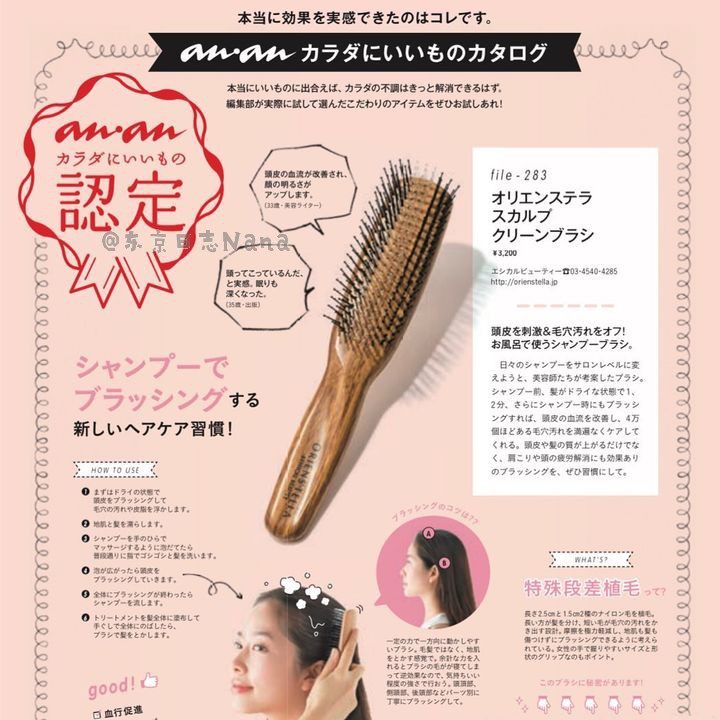 本当に効果を実感できたのはコレです。
an・an カラダにいいものカタログ
本当にいいものに出合えば、カラダの不調はきっと解消できるはず。
編集部が実際に試して選んだこだわりのアイテムをぜひお試しあれ！
an・an
カラダにいいもの
認定
@东京日志Nana
頭皮の血流が改善され、
顔の明るさが
アップします。
（33歳・美容ライター）
頭ってこっているんだ、
と実感。眠りも
深くなった。
（35歳・出版）
file - 283
オリエンステラ
スカルプ
クリーンブラシ
¥3,200
エシカルビューティー☎03-4540-4285
http://orienstella.jp
頭皮を刺激＆毛穴汚れをオフ！
お風呂で使うシャンプーブラシ。
日々のシャンプーをサロンレベルに変
えようと、美容師たちが考案したブラシ。
シャンプー前、髪がドライな状態で1、
2分、さらにシャンプー時にもブラッシ
ングすれば、頭皮の血流を改善し、4万
個ほどある毛穴汚れを満遍なくケアして
くれる。頭皮や髪の質が上がるだけでな
く、肩こりや頭の疲労解消にも効果あり
のブラッシングを、ぜひ習慣にして。
シャンプーで
ブラッシングする
新しいヘアケア習慣！
ORIENSTELLA
HOW TO USE
1 まずはドライの状態で
頭皮をブラッシングして
毛穴の汚れや皮脂を浮かします。
2 地肌と髪を濡らします。
3 シャンプーを手のひらで
マッサージするように泡だてたら
普段通りに指でゴシゴシと髪を洗います。
4 泡が広がったら頭皮を
ブラッシングしていきます。
5 全体にブラッシングが終わったら
シャンプーを流します。
6 トリートメントを髪全体に塗布して
手ぐしで全体にのばしたら、
ブラシで髪をとかします。
good!
血行促進
ブラッシングのコツは??
A
B
一定の力で一方向に動かしやす
いブラシ。毛髪ではなく、地肌
をとかす感覚で。余計な力を入
れるとブラシの毛がが寝てしま
って逆効果なので、気持ちいい
程度の強さで行おう。頭頂部、
側頭部、後頭部などパーツ別に
丁寧にブラッシングして。
WHAT'S?
特殊段差植毛って?
長さ2.5cmと1.5cm2種のナイロン毛を植毛。
長い方が髪を分け、短い毛が毛穴の汚れをか
き出す設計。摩擦を極力軽減し、地肌も髪も
傷つけずにブラッシングできるように考えら
れている。女性の手で握りやすいサイズと形
状のグリップなのもポイント。
このブラシに秘密があります！